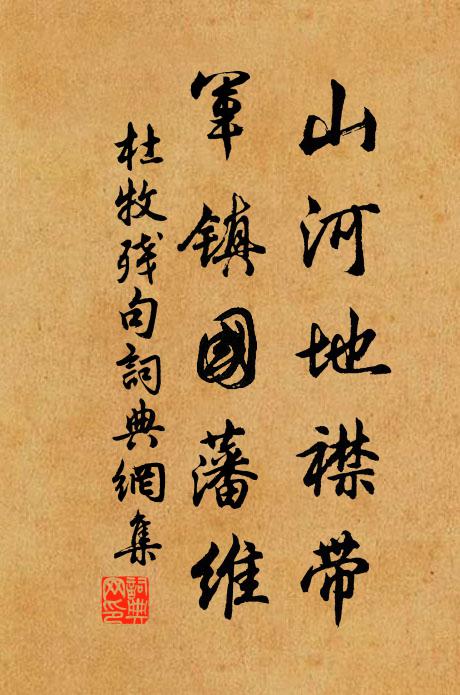 山河地襟带
軍镇國藩维
杜牧残句詞典網集
詞典网印